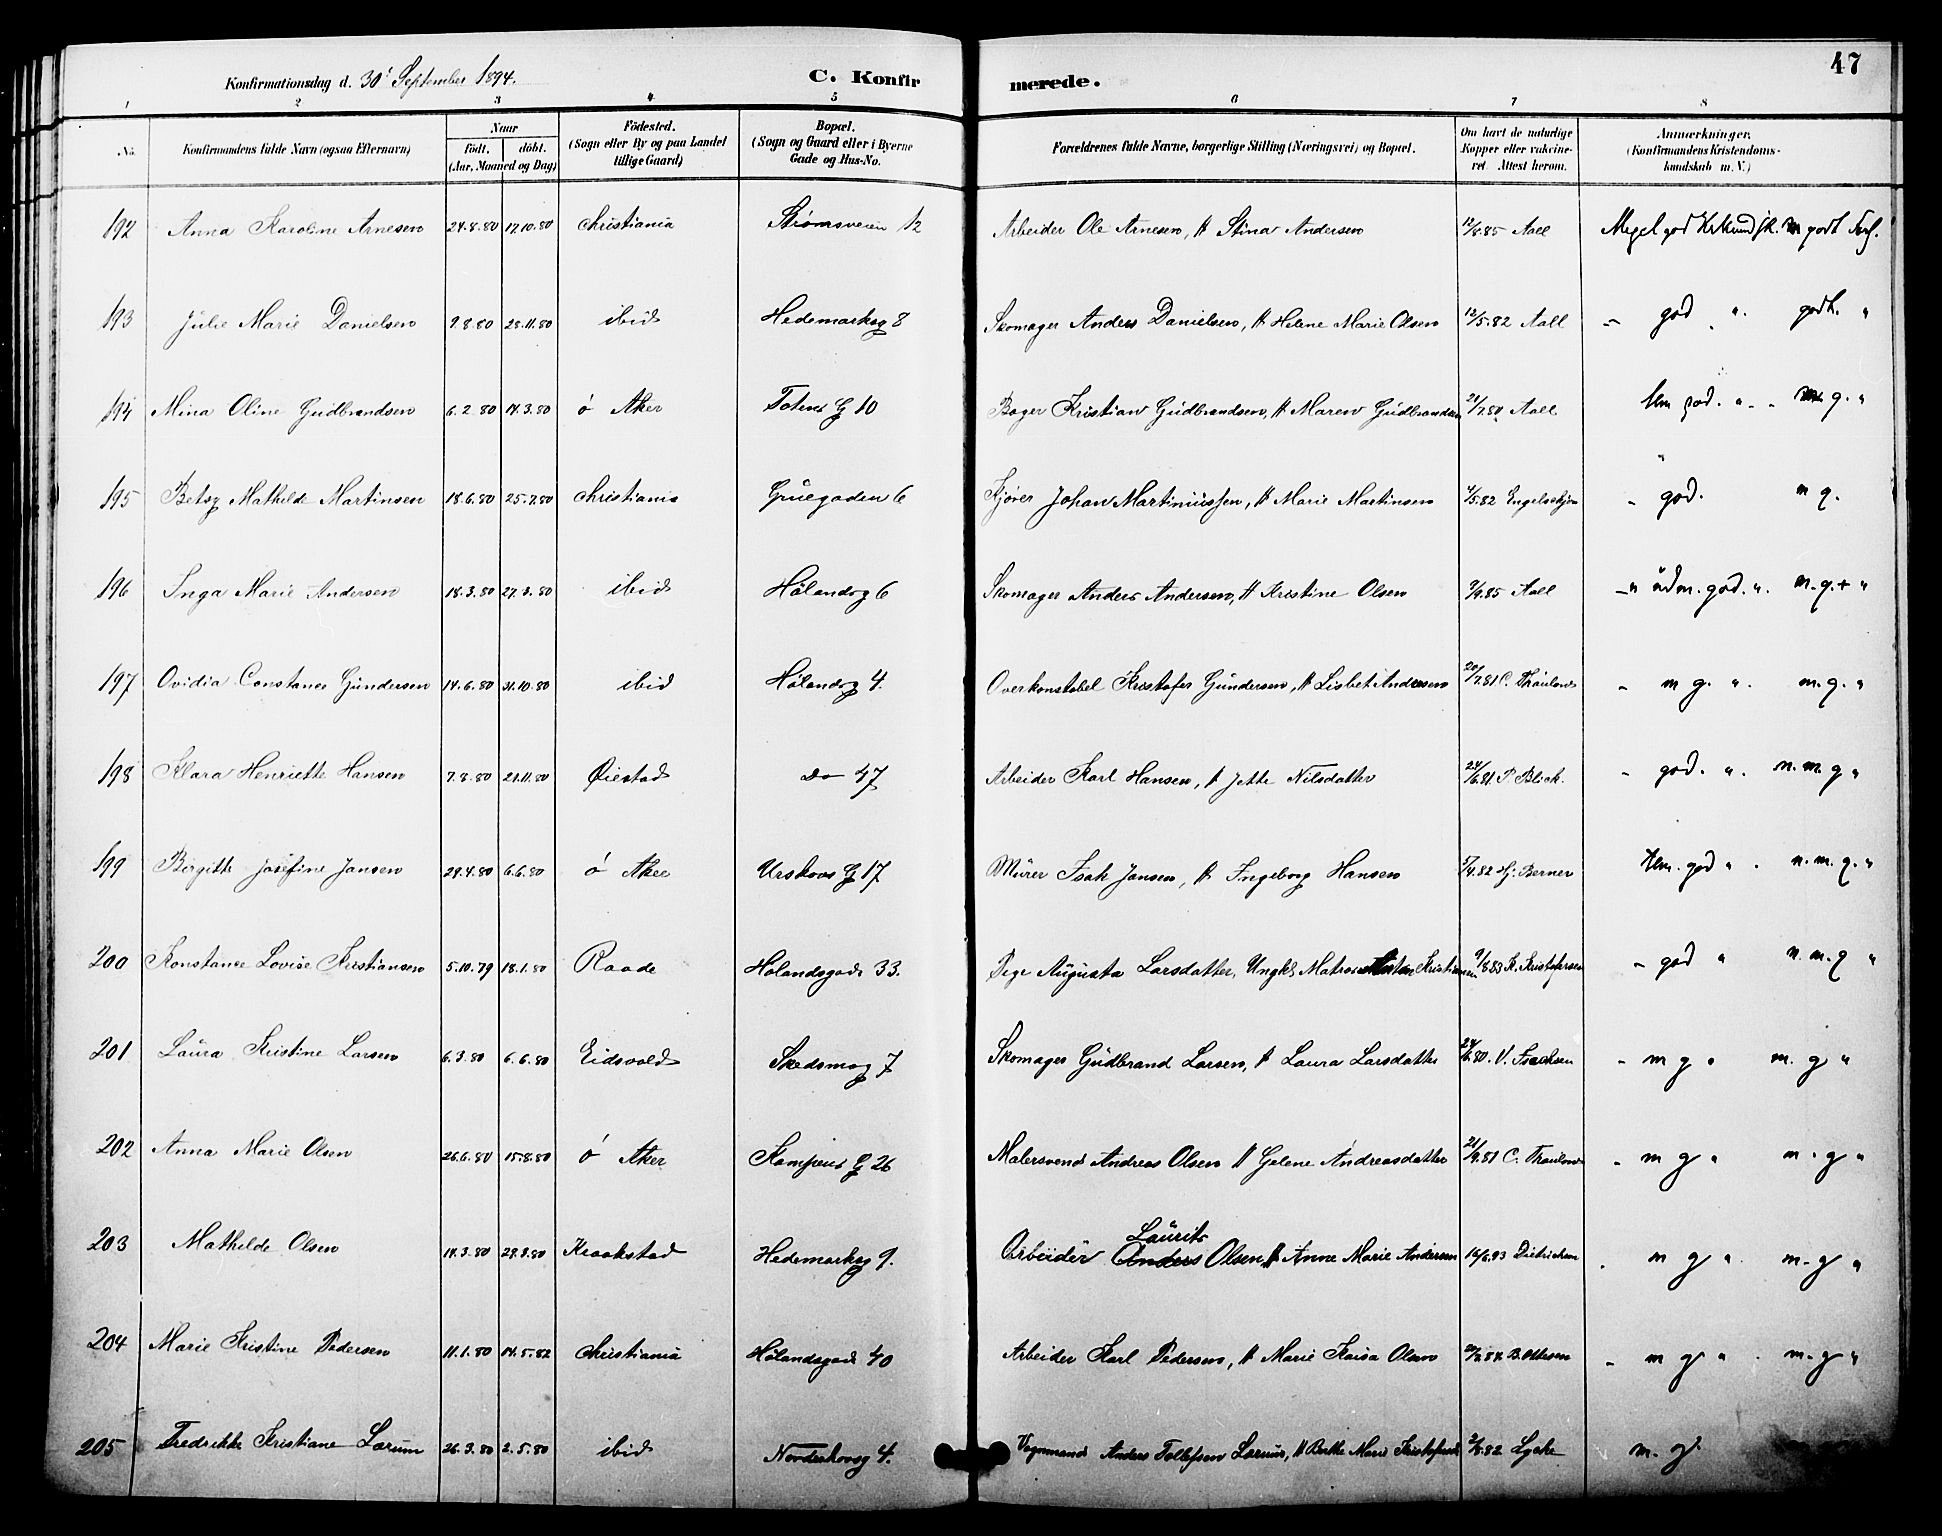 47
Konfirmationsdag d. 30' September 1894. C. Konfirmerede.
1 2 3 4 5 6 7 8
No. Konfirmandens fulde Navn (ogsaa Efternavn) Naar födt. döbt. (Aar, Maaned og Dag) Födested. (Sogn eller By og paa Landet tillige Gaard) Bopæl. (Sogn og Gaard eller i Byerne Gade og Hus-No. Forældrenes fulde Navne, borgerlige Stilling (Næringsvei) og Bopæl. Om havt de naturlige Kopper eller vakcineret. Attest herom. Anmærkninger. (Konfirmandens Kristendomskundskab m. V.)
192 Anna Karoline Arnesen 24.8.80 17.10.80 Christiania Strömsveien 12 Arbeider Ole Arnesen, H Stina Andersen 12/8.85 Aall Meget god Krkundsk. m godt
193 Julie Marie Danielsen 9.8.80 28.11.80 ibid Hedemarksg 8 Skomager Anders Danielsen, H Helene Marie Olsen 12/5.82 Aall - god " godt. "
194 Mina Oline Gudbrandsen 6.2.80 14.3.80 ö Aker Totens G 10 Bager Kristian Gudbrandsen, H Maren Gudbrandsen 21/7.80 Aall god. " - m g. "
195 Betsy Mathilde Martinsen 18.6.80 25.7.80 Christiania Gruegaden 6 Kjörer Johan Martiniussen, H Marie Martinsen 4/5.82 - god. " m g.
196 Inga Marie Andersen 18.3.80 27.3.80 ibid Hölandsg 6 Skomager Anders Andersen, H Kristine Olsen 7/9.85 Aall - " udm. god. ". m. g. + "
197 Ovidia Constance Gundersen 14.6.80 31.10.80 ibid Hölandsg 4. Overkonstabel Kristofer Gundersen, H Lisbet Andresen 20/7.81 C. Thaulow - m g. ". m. g. "
198 Klara Henriette Hansen 7.8.80 21.11.80 Øiestad Do 47 Arbeider Karl Hansen, H Jette Nilsdatter 24/6.81. P. Blich. - god. ". n. m. g "
199 Birgitte Josefine Jansen 29.4.80 6.6.80 ö Aker Urskous G 17 Murer Isak Jansen, H Ingeborg Hansen 5/4.82 Hj. Berner god " . n. m. g. "
200 Konstance Lovise Kristiansen 5.10.79 18.1.80 Raade Hölandsgade 33. Pige Augusta Larsdatter, Ungkl Matros Anton Kristiansen 9/8.83 K. Kristofersen - god " n. m. g "
201 Laura Kristine Larsen 6.3.80 6.6.80 Eidsvold Skedsmog 7 Skomager Gudbrand Larsen, H Laura Larsdatter 24/6.80. V. Isachsen - m g " m. g "
202 Anna Marie Olsen 26.6.80 15.8.80 ö Aker Kampens G 26 Malersvend Andreas Olsen H Gelene Andreasdatter 21/9.81 C. Thaulow - m g " m. g "
203 Mathilde Olsen 14.3.80 29.3.80 Kraakstad Hedemarksg 9. Arbeider Anders Laurits Olsen, H Anne Marie Andersen 16/6.93 Dietrichson . m g ". m. g "
204 Marie Kristine Pedersen 11.1.80 14.5.82 Christiania Hölandsgade 40 Arbeider Karl Pedersen, H Marie Kaisa Olsen B. Ottesen - m g " . m. g "
205 Fredrikke Kristiane Lorum 26.3.80 2.5.80 ibid Norderhovsg 4. Vognmand Anders Tollefsen Lorum, H Berthe Marie 2/8.82 Lyche m. g.